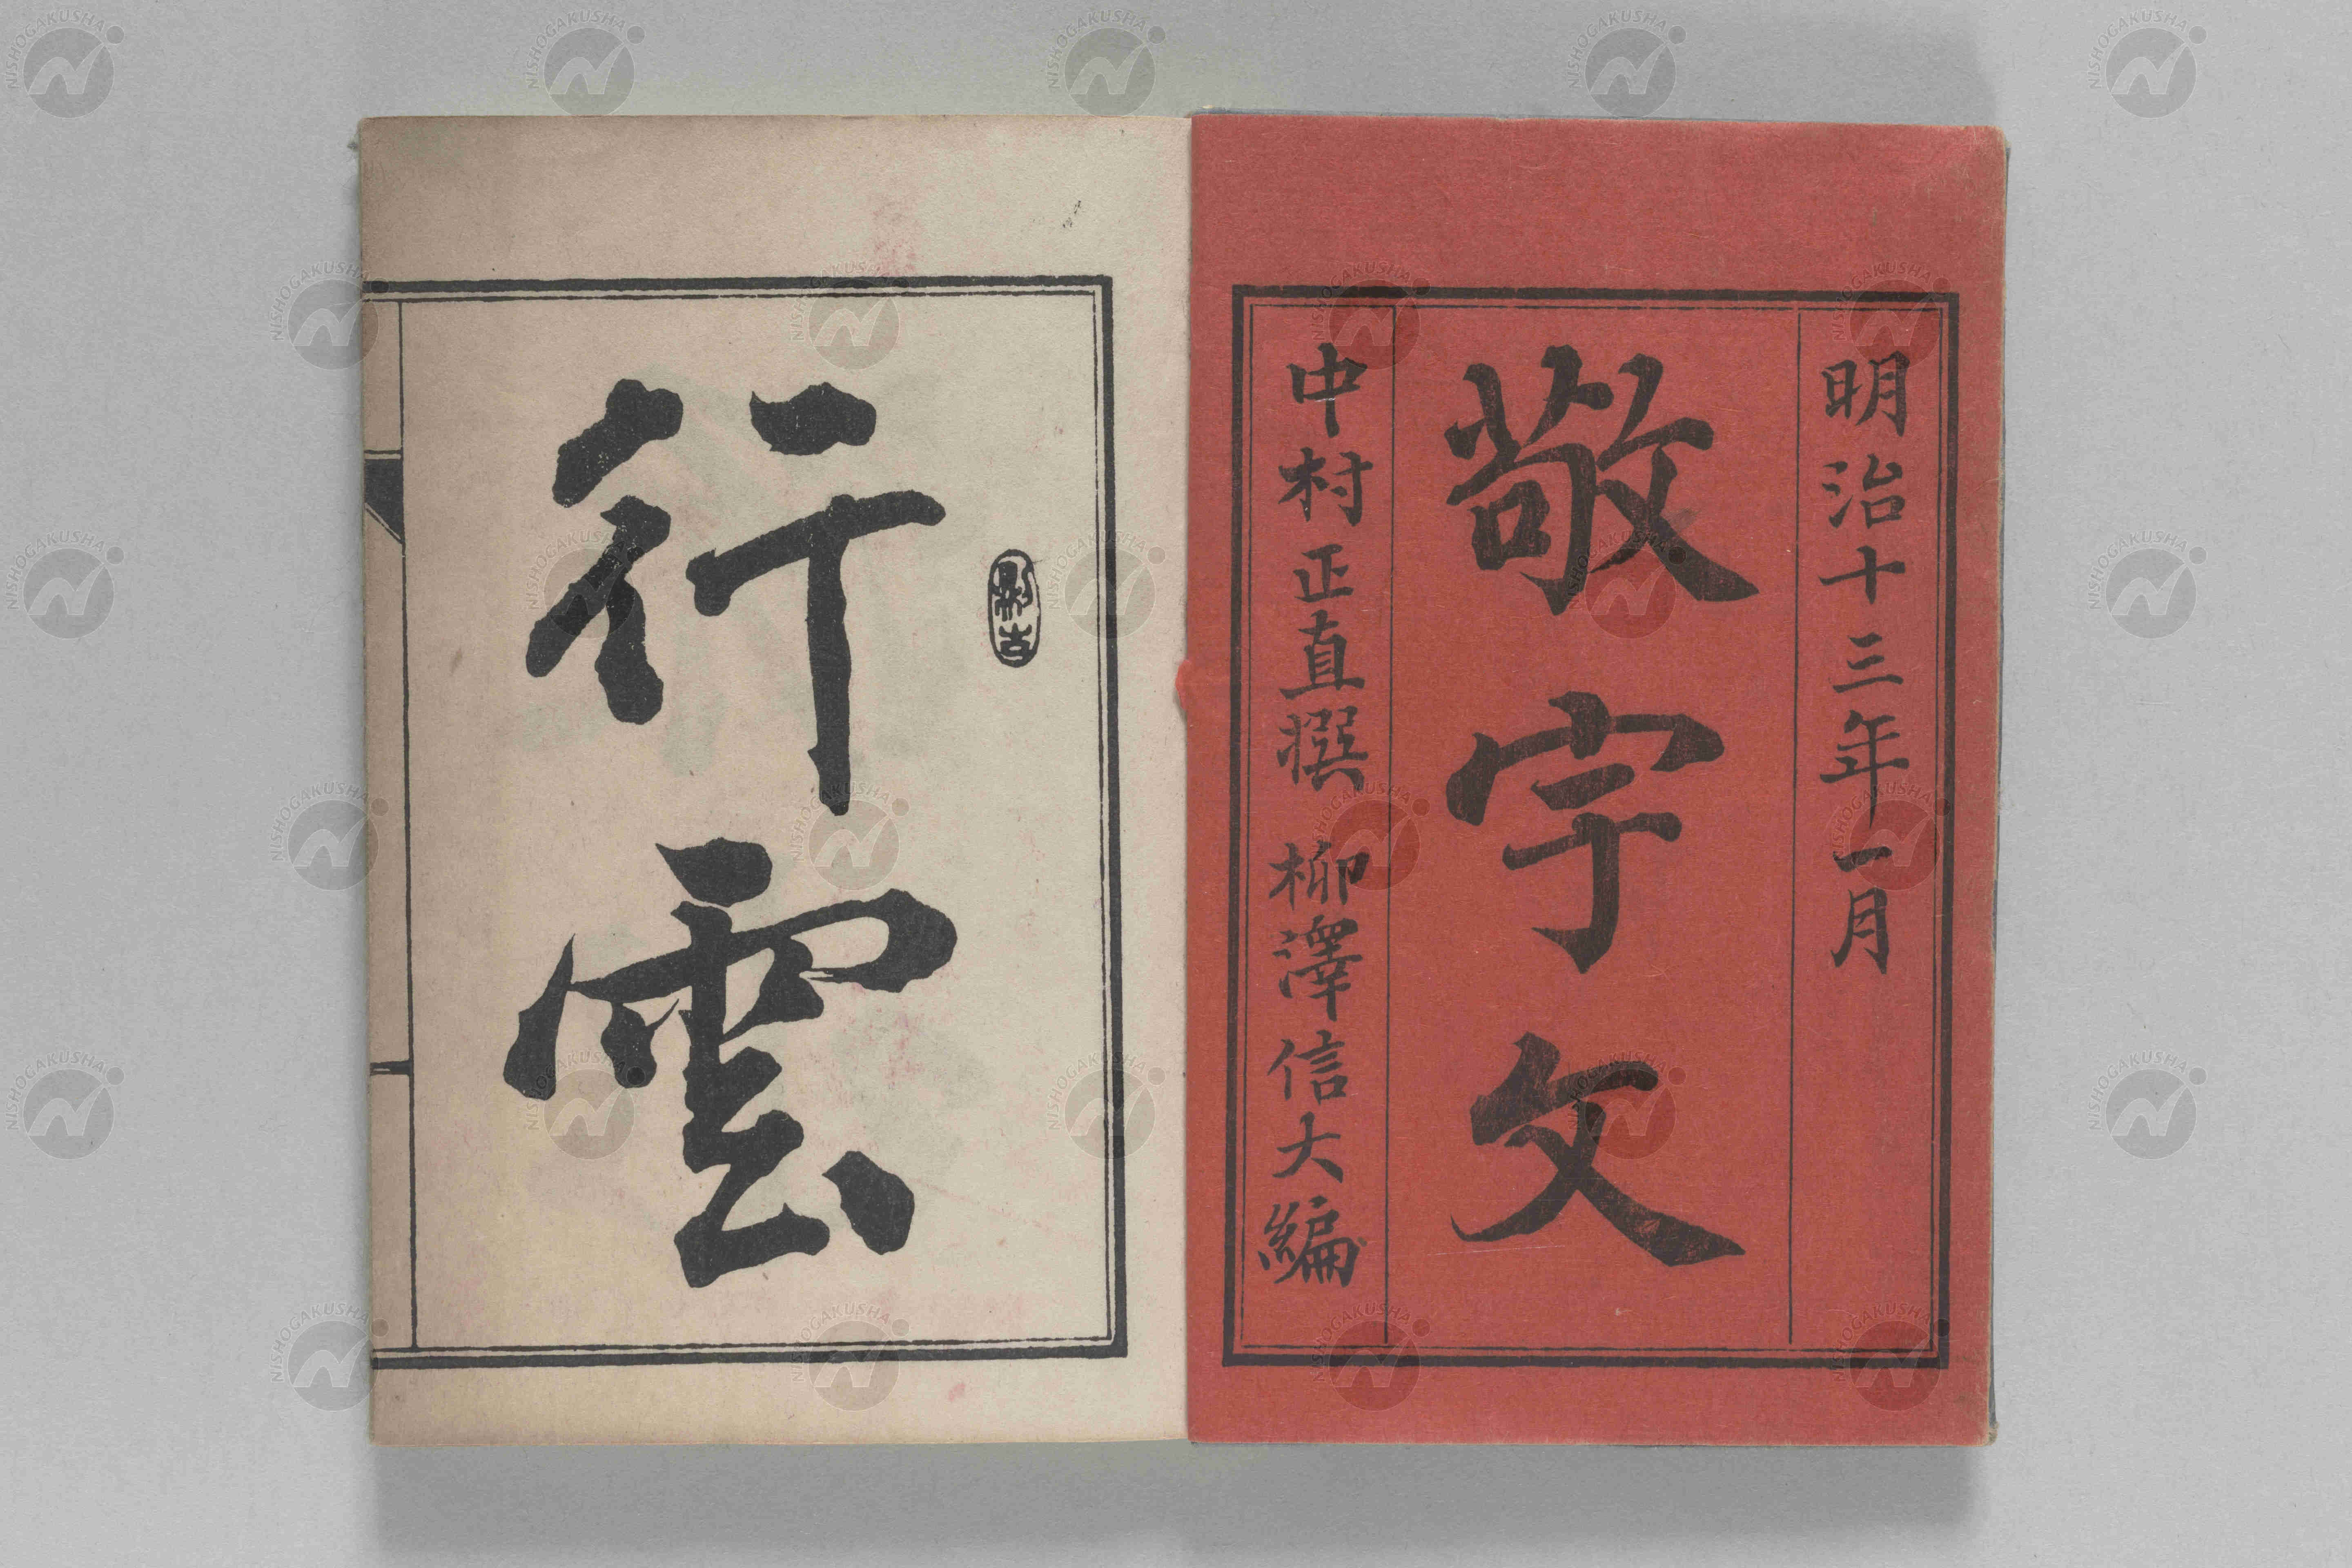 明治十三年一月
敬宇文
中村正直撰 柳澤信大編
行雲
NISHOGAKUSHA